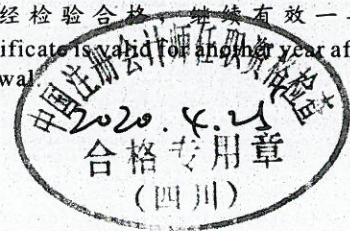 经检验合格，继续有效一
ificate is valid for another year af
wal
中国注册会计师任职资格检查
2020.4.25
合格专用章
（四川）